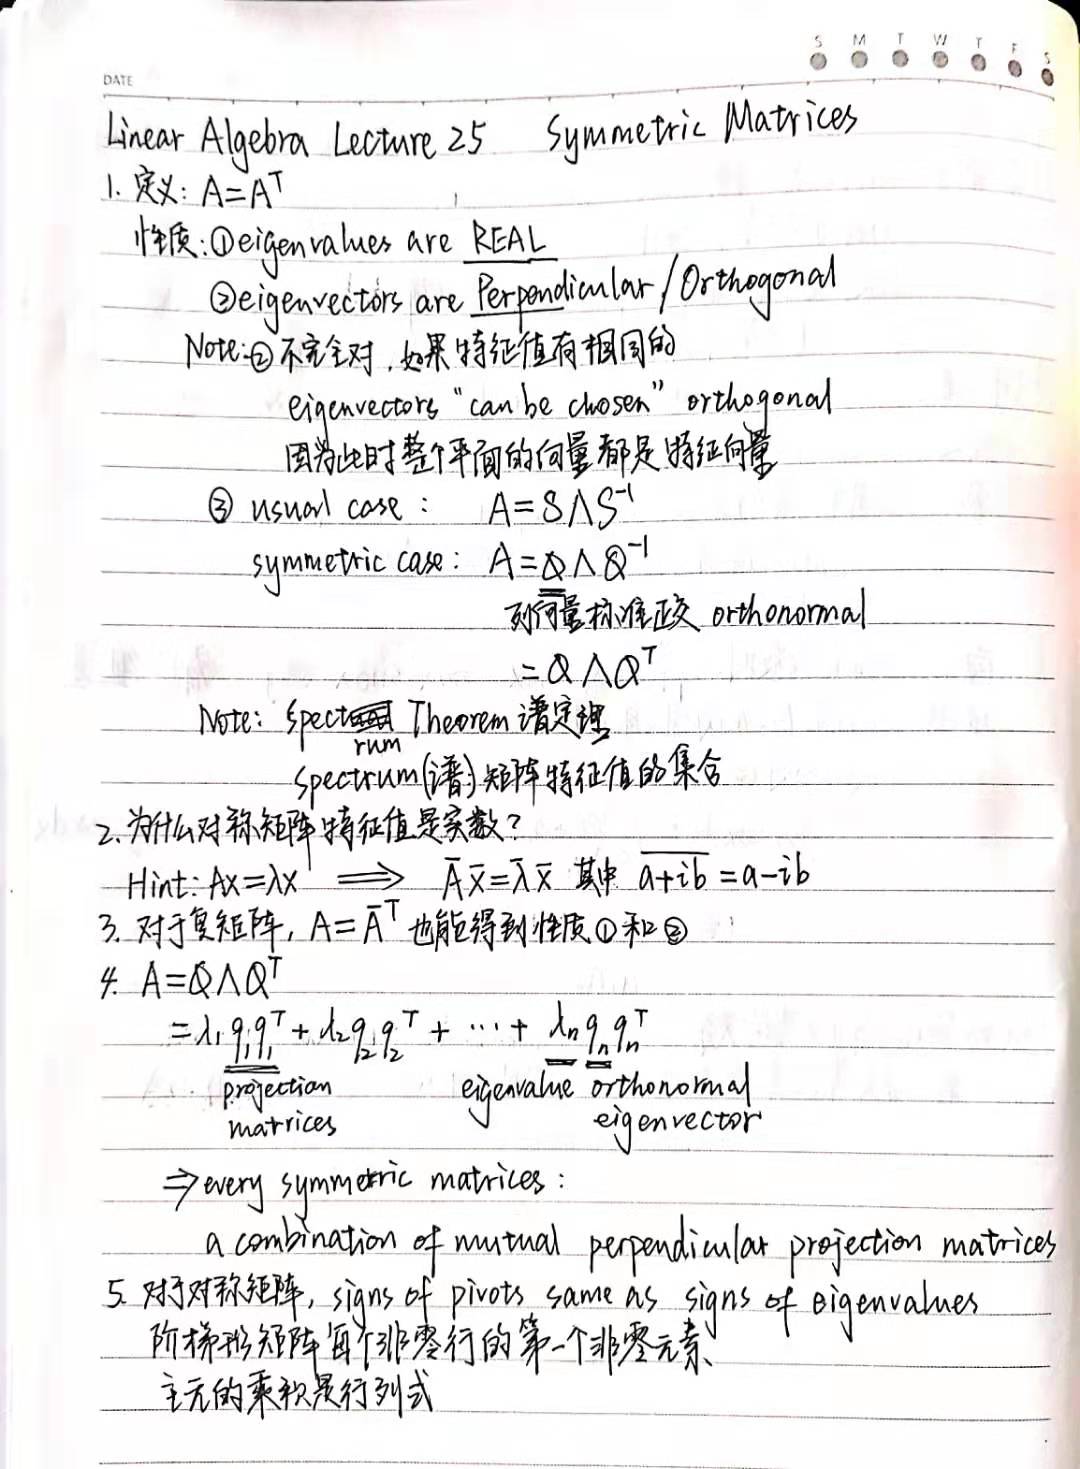 S M T W T F S
DATE
Linear Algebra Lecture 25 Symmetric Matrices
1. 定义: A=Aᵀ
性质: ①eigenvalues are REAL
②eigenvectors are Perpendicular / Orthogonal
Note:② 不完全对, 如果特征值有相同的
eigenvectors "can be chosen" orthogonal
因为此时整个平面的向量都是特征向量
③ usual case: A=SΛS⁻¹
symmetric case: A=QΛQ⁻¹
列向量标准正交 orthonormal
=QΛQᵀ
Note: Spectrum Theorem 谱定理
spectrum(谱) 矩阵特征值的集合
2. 为什么对称矩阵特征值是实数?
Hint: Ax=λx ⟹ A̅x̅=λ̅x̅ 其中 a+ib̅ =a-ib
3. 对于复矩阵, A=A̅ᵀ 也能得到性质①和②
4. A=QΛQᵀ
=λ₁q₁q₁ᵀ+λ₂q₂q₂ᵀ+⋯+λₙqₙqₙᵀ
projection matrices eigenvalue orthonormal eigenvector
⇒ every symmetric matrices:
a combination of mutual perpendicular projection matrices
5. 对于对称矩阵, signs of pivots same as signs of eigenvalues
阶梯形矩阵每个非零行的第一个非零元素、
主元的乘积是行列式